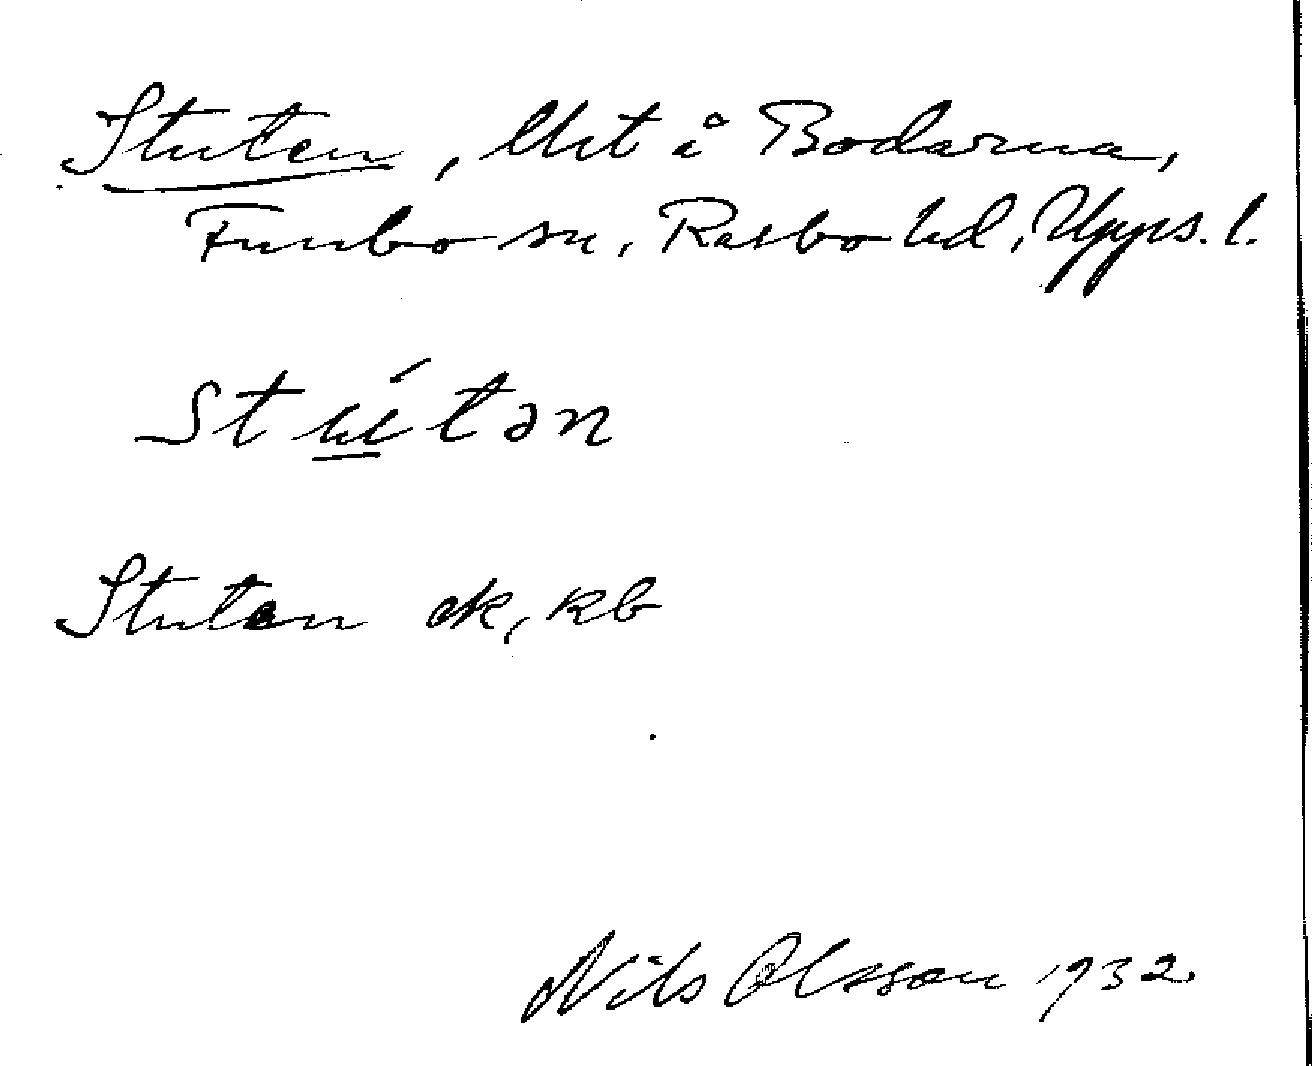 Stuten, lht å Bodarna,
Funbo sn, Rasbo hd, Upps. l.
stú̲tən
Stuten ek, kb
Nils Olsson 1932